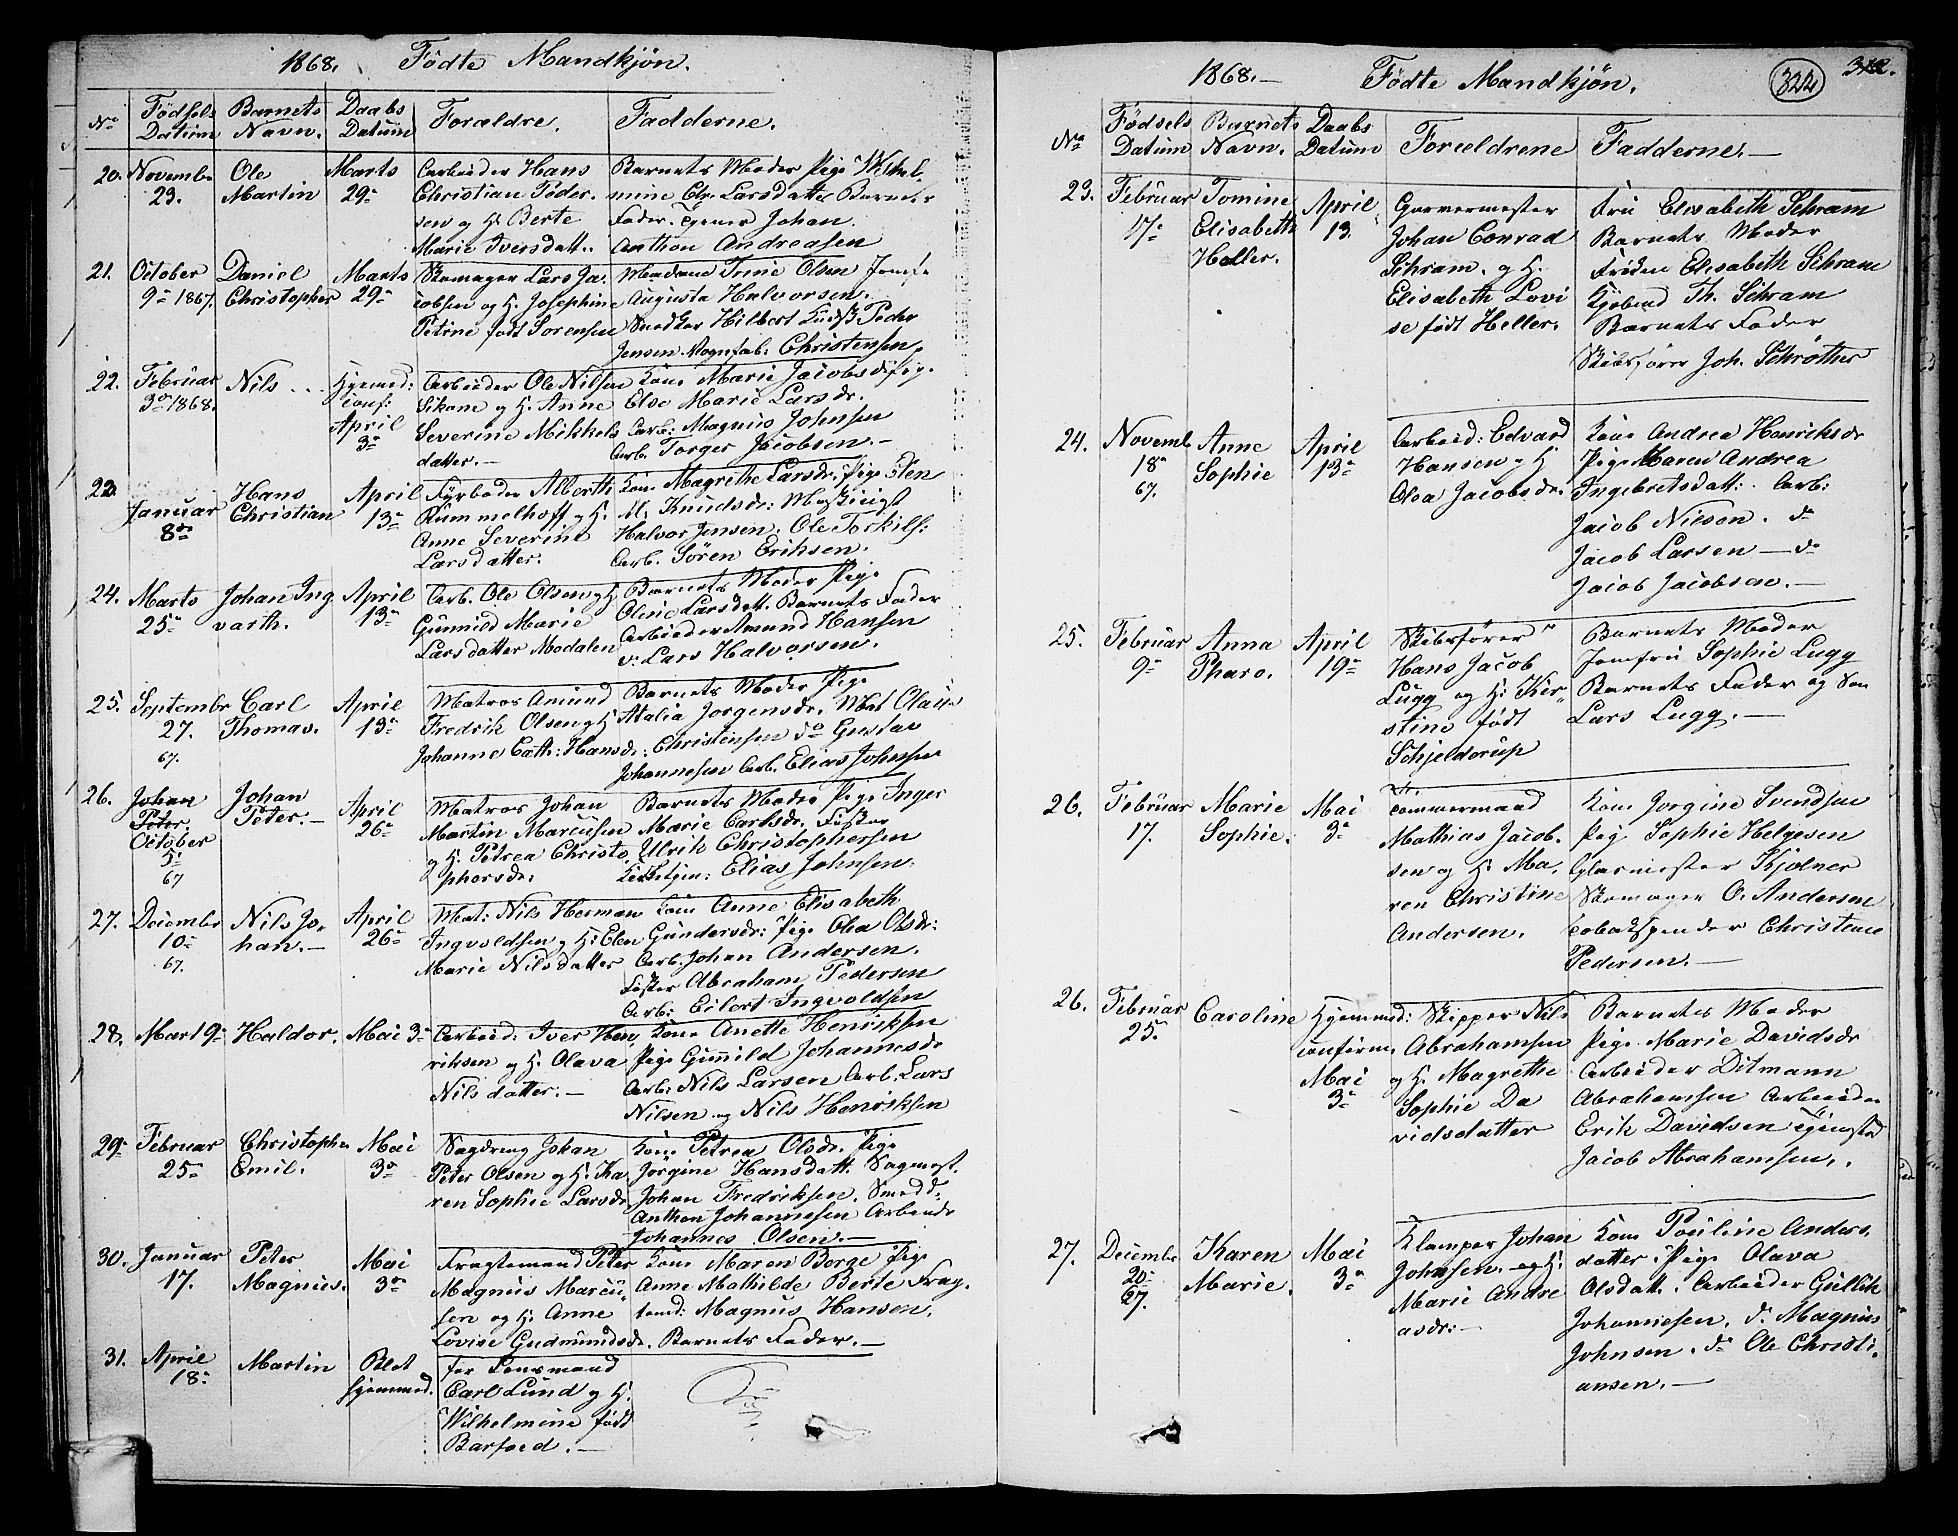 1868. Födte Mandkjön.
No Födsels Datum Barnets Navn. Daabs Datum Forældre. Fadderne.
20. Novembr 23. Ole Martin Marts 29de
Arbeider Hans
Christian Peder
sen og H. Berte
Marie Iversdatt.
Barnets Moder Pige Wilhel
mine Chr. Larsdatter Barnets
Fader. Johan
Anthon Andreasen
21. October 9de 1867. Daniel Christopher Marts 29de
Skomager Lars Ja
cobsen og H. Josephine
Petrine født Sörensen
Madame Trine Olsen Jomfr
Augusta Halvorsen.
Snedker Hilbert Peder
Jensen. Vognfab: Christensen.
22. Februar 3de 1868. Nils Hjemmed: conf: April 3de
Arbeider Ole Nilsen
Sikane og H. Anne
Severine Mikkels
datter.
Kone Marie Jacobsd Pige
Else Marie Larsdr.
Arb: Magnus Johnsen
Arb. Torger Jacobsen.
23. Januar 8de Hans Christian April 13de
Fyrböder Alberth
Rummelhoff og H.
Anne Severine
Larsdatter.
Kone Magrethe Larsdr. Pige Elen
M. Knudsdr: Maskinist
Halvor Jensen. Ole Torkilf:
Arb. Sören Eriksen.
24. Marts 25de Johan Ing varth. April 13de
Arb. Ole Olsen og H
Gunnild Marie
Larsdatter Modalen
Barnets Moder Pige
Oline Larsdatt. Barnets Fader
Arbeider Amund Hansen
v: Lars Halvorsen.
25. Septembr 27. 67. Carl Thomas. April 13de
Matros Amund
Fredrik Olsen og H
Johanne Cath: Hansdr:
Barnets Moder Pige
Atalia Jorgensdr. Mat Olaus
Christensen do Gustav
Johannesen Arb. Elias Johnsen
26. Johan Peter October 67 Johan Peter. April 26de
Matros Johan
Martin Marcusen
og H. Petrea Christo
phersdr:
Barnets Moder Pige Inger
Marie Carlsdr. Fisker
Ulrik Christophersen
Elias Johnsen.
27. Decembr 10de 67. Nils Jo, han. April 26de
Mat: Nils Herman
Ingvoldsen og H: Elen
Marie Nilsdatter
Kone Anne Elisabeth
Gundersdr: Pige Olea Olsdr:
Arb. Johan Andersen.
Fisker Abraham Pedersen
Arb: Eilert Ingvoldsen
28. Mart 9de Haldor. Mai 3de
Arbeid: Iver Hen,
riksen og H. Olava
Nilsdatter.
Kone Anette Henriksen
Pige Gunnild Johannesdr
Arb: Nils Larsen Arb. Lars
Nilsen og Nils Henriksen
29de Februar 25de Christopher Emil. Mai 3de
Sagdreng Johan
Peter Olsen og H. Ka,
ren Sophie Larsdr
Kone Petrea Olsdr. Pige
Jörgine Hansdatt. Sagmest.
Johan Fredriksen. Smedd:
Anthon Johannesen Arbeidr
Johannes Olsen.
30. Januar 17. Peter Magnus. Mai 3de
Fragtemand Peter
Magnus Marcu,
sen og H. Anne
Lovise Gudmundsdr.
Kone Maren Borge Pige
Anne Mathilde Berte Frag.
temd: Magnus Hansen.
Barnets Fader.
31. April 18de Martin Blot hjemmed.
for Lensmand
Carl Lund og H.
Wilhelmine født
Barfoed.
1868. Födte Mandkjön. 322 312.
No Födsels Datum Barnets Navn. Daabs Datum Forældrene Fadderne.
23. Februar 17de Tomine Elisabeth Heller. April 13.
Garvermester
Johan Conrad
Schram. og H.
Elisabeth Lovi
se født Heller.
Fru Elisabeth Schram
Barnets Moder
Fröken Elisabeth Schram
Kjöbmd Th. Schram
Barnets Fader
Skibsförer Joh. Schröther
24. Novembr 18de 67. Anne Sophie April 13de
Arbeid: Edvard
Hansen og H
Olea Jacobsdr.
Kone Andrea Henriksdr
Pige Maren Andrea
Ingebretsdatt: Arb:
Jacob Nilsen. do
Jacob Larsen do
Jacob Jacobsen.
25. Februar 9de Anna Pharo. April 19de
Skibsförer
Hans Jacob
Lugg og H: Kir
stine født
Schjelderup
Barnets Moder
Jomfru Sophie Lugg
Barnets Fader og Søn
Lars Lugg.
26. Februar 17. Marie Sophie. Mai 3de
Tömmermand
Mathias Jacob.
sen og H. Ma,
ren Christine
Andersen.
Kone Jorgine Svendsen
Pige Sophie Helgesen
Glarmester Kjölner
Skomager O. Andersen
Tobakspinder Christian
Pedersen.
26. Februar 25de Caroline Hjemmed: confirm. Mai 3de
Skipper Nils
Abrahamsen
og H. Magrethe
Sophie Da
vidsdatter
Barnets Moder
Pige Marie Davidsdr
Arbeider Ditmann
Abrahamsen Arbeider
Erik Davidsen
Jacob Abrahamsen.
27. Decembr 20de 67. Karen Marie. Mai 3de
Klamper Johan
Johnsen. og H.
Marie Andre
asdr:
Kone Pouline Anders,
datter. Pige Olava
Olsdatt. Arbeider Gullik
Johannesen. do Magnus
Johnsen. do Ole Christi,
ansen.